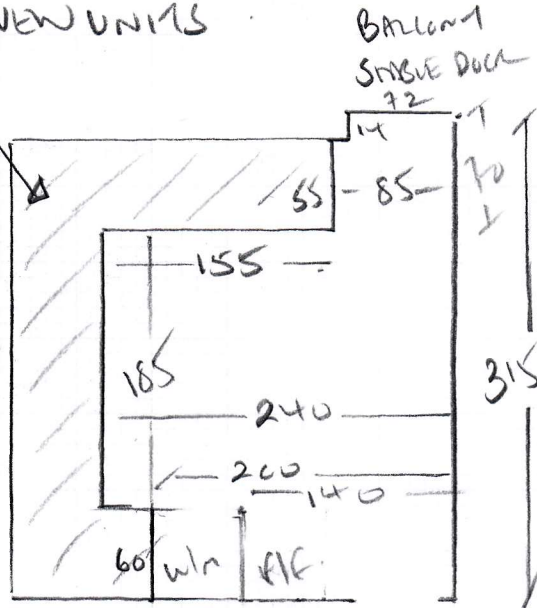 NEW UNITS
BALCONY
STABLE DOOR
72
14
55
85
70
155
185
315
240
200
140
60
W/M
F/F